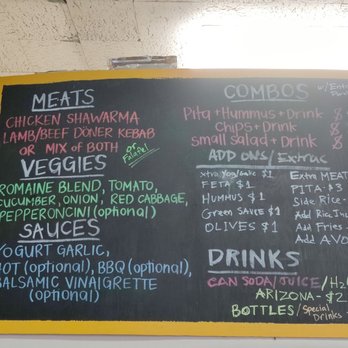 MEATS
CHICKEN SHAWARMA
LAMB/BEEF DÖNER KEBAB
OR MIX OF BOTH
or Falafel
VEGGIES
ROMAINE BLEND, TOMATO,
CUCUMBER, ONION, RED CABBAGE,
PEPPERONCINI (optional)
SAUCES
YOGURT GARLIC,
HOT (optional), BBQ (optional),
BALSAMIC VINAIGRETTE
(optional)
COMBOS
Pita + Hummus + Drink 8
Chips + Drink 8
small salad + Drink 8
ADD ONS/ Extras
xtra yog/Garlic $1
FETA $1
HUMMUS $1
Green SAUCE $1
OLIVES $1
Extra MEAT
PITA-$3
Side Rice-
Add Rice
Add Fries-
Add AVO
DRINKS
CAN SODA/JUICE/H2
ARIZONA-$2
BOTTLES/Special Drinks